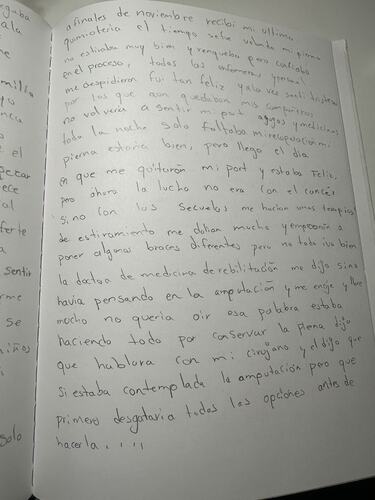 afinales de noviembre recibi mi ultima
quimioteria el tiempo sebe volando mi pierna
no estiraba muy bien y renqueba pero confiaba
en el proceso, todas las enfermeras y personal
me despidieron fui tan feliz y a la vez senti tristeza
por los que aun quedaban mis compañeros
no volveria a sentir mi port agujas y medicinas
toda la noche solo faltaba mi recuperacion mi
pierna estaria bien, pero llego el dia
en que me quitaron mi port y estaba Feliz,
pero ahora la lucha no era con el cancer
sino con las secuelas me hacian unas terapias
de estiramiento me dolian mucho y empezaron a
poner algunas braces diferentes pero no todo iva bien
la doctora de medicina de rebilitación me dijo sino
havia pensando en la amputación y me enoje y llore
mucho no queria oir esa palabra estaba
haciendo todo por conservar la pierna dijo
que hablara con mi cirujano y el dijo que
si estaba contemplada la amputación pero que
primero desgataria todas las opciones antes de
hacerla . . . .
guba
ala
ne
milia
yo
ncia
e el
pezar
ece
al
ferte
a
sentir
rme
se
niños
i
solo